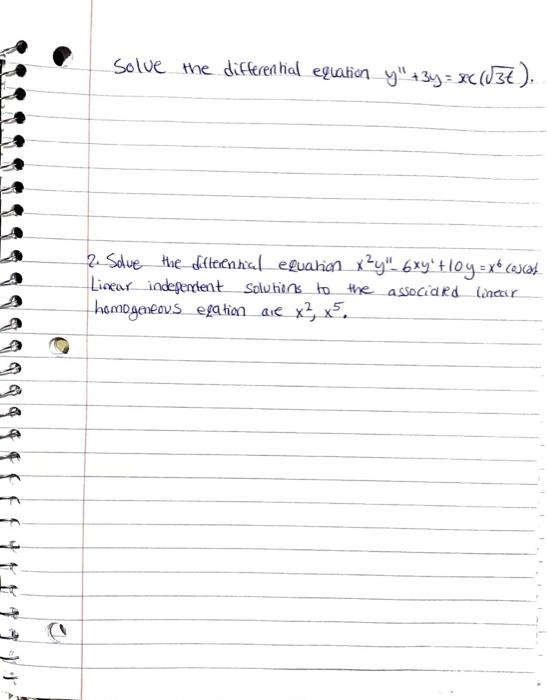 Solve the differential equation y" + 3y = sec(√3t).
2. Solve the differential equation x²y" - 6xy' + 10y = x⁶
Linear independent solutions to the associated linear
homogeneous eqation are x², x⁵.